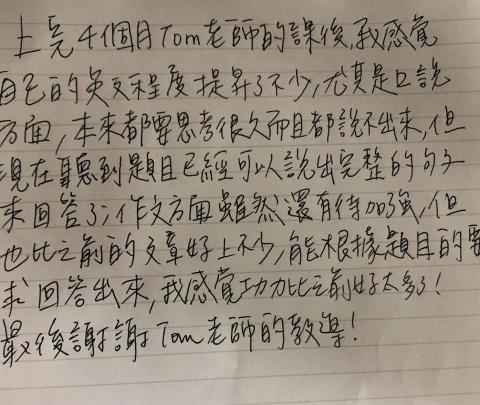 上完4個月Tom老師的課後,我感覺
自己的英文程度提昇了不少,尤其是口說
方面,本來都要思考很久而且都說不出來,但
現在聽到題目已經可以說出完整的句子
來回答了;作文方面雖然還有待加強,但
也比之前的文章好上不少,能根據題目的要
求回答出來,我感覺功力比之前好太多了!
最後謝謝Tom老師的教導!